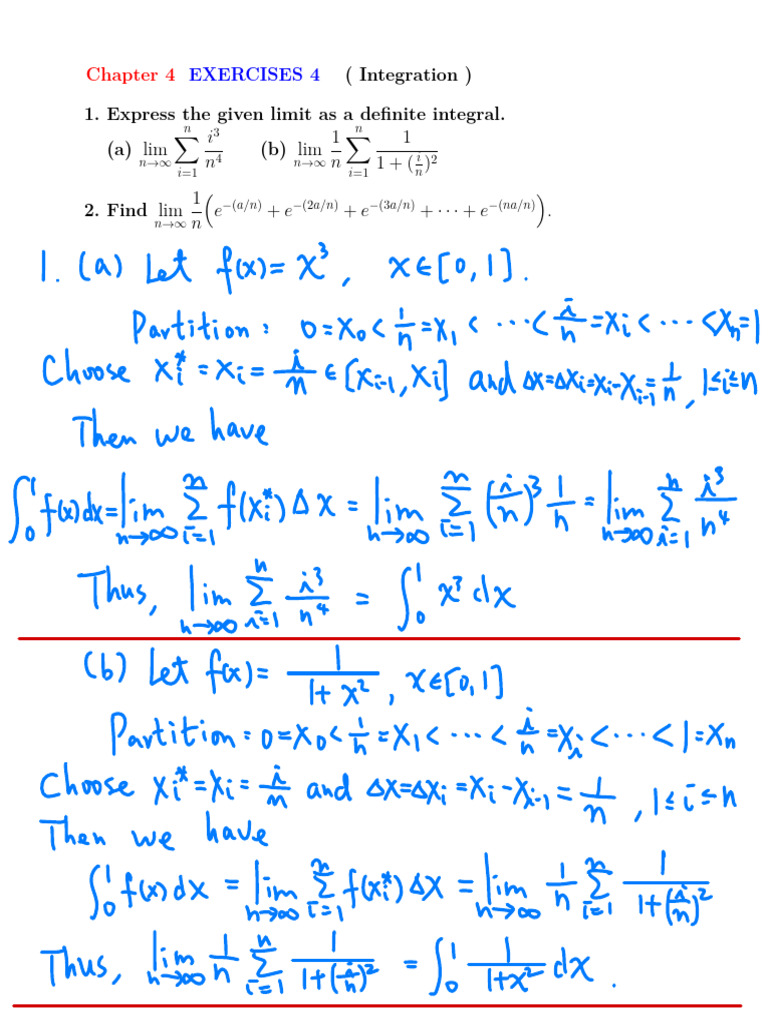 Chapter 4 EXERCISES 4 ( Integration )
1. Express the given limit as a definite integral.
(a) lim_{n→∞} ∑_{i=1}^{n} i³/n⁴ (b) lim_{n→∞} 1/n ∑_{i=1}^{n} 1/(1 + (i/n)²)
2. Find lim_{n→∞} 1/n (e^{−(a/n)} + e^{−(2a/n)} + e^{−(3a/n)} + ··· + e^{−(na/n)}).
1. (a) Let f(x) = x³, x∈[0,1].
Partition: 0=x₀< 1/n =x₁< ··· < i/n =xᵢ< ··· <xₙ=1
Choose xᵢ* = xᵢ = i/n ∈ [xᵢ₋₁, xᵢ] and Δx=Δxᵢ=xᵢ−xᵢ₋₁= 1/n, 1≤i≤n
Then we have
∫₀¹ f(x)dx = lim_{n→∞} ∑_{i=1}^{n} f(xᵢ*)Δx = lim_{n→∞} ∑_{i=1}^{n} (i/n)³ 1/n = lim_{n→∞} ∑_{i=1}^{n} i³/n⁴
Thus, lim_{n→∞} ∑_{i=1}^{n} i³/n⁴ = ∫₀¹ x³ dx
(b) Let f(x) = 1/(1+x²), x∈[0,1]
Partition: 0=x₀< 1/n =x₁< ··· < i/n =xᵢ< ··· <1=xₙ
Choose xᵢ*=xᵢ= i/n and Δx=Δxᵢ=xᵢ−xᵢ₋₁= 1/n, 1≤i≤n
Then we have
∫₀¹ f(x)dx = lim_{n→∞} ∑_{i=1}^{n} f(xᵢ*)Δx = lim_{n→∞} 1/n ∑_{i=1}^{n} 1/(1+(i/n)²)
Thus, lim_{n→∞} 1/n ∑_{i=1}^{n} 1/(1+(i/n)²) = ∫₀¹ 1/(1+x²) dx.